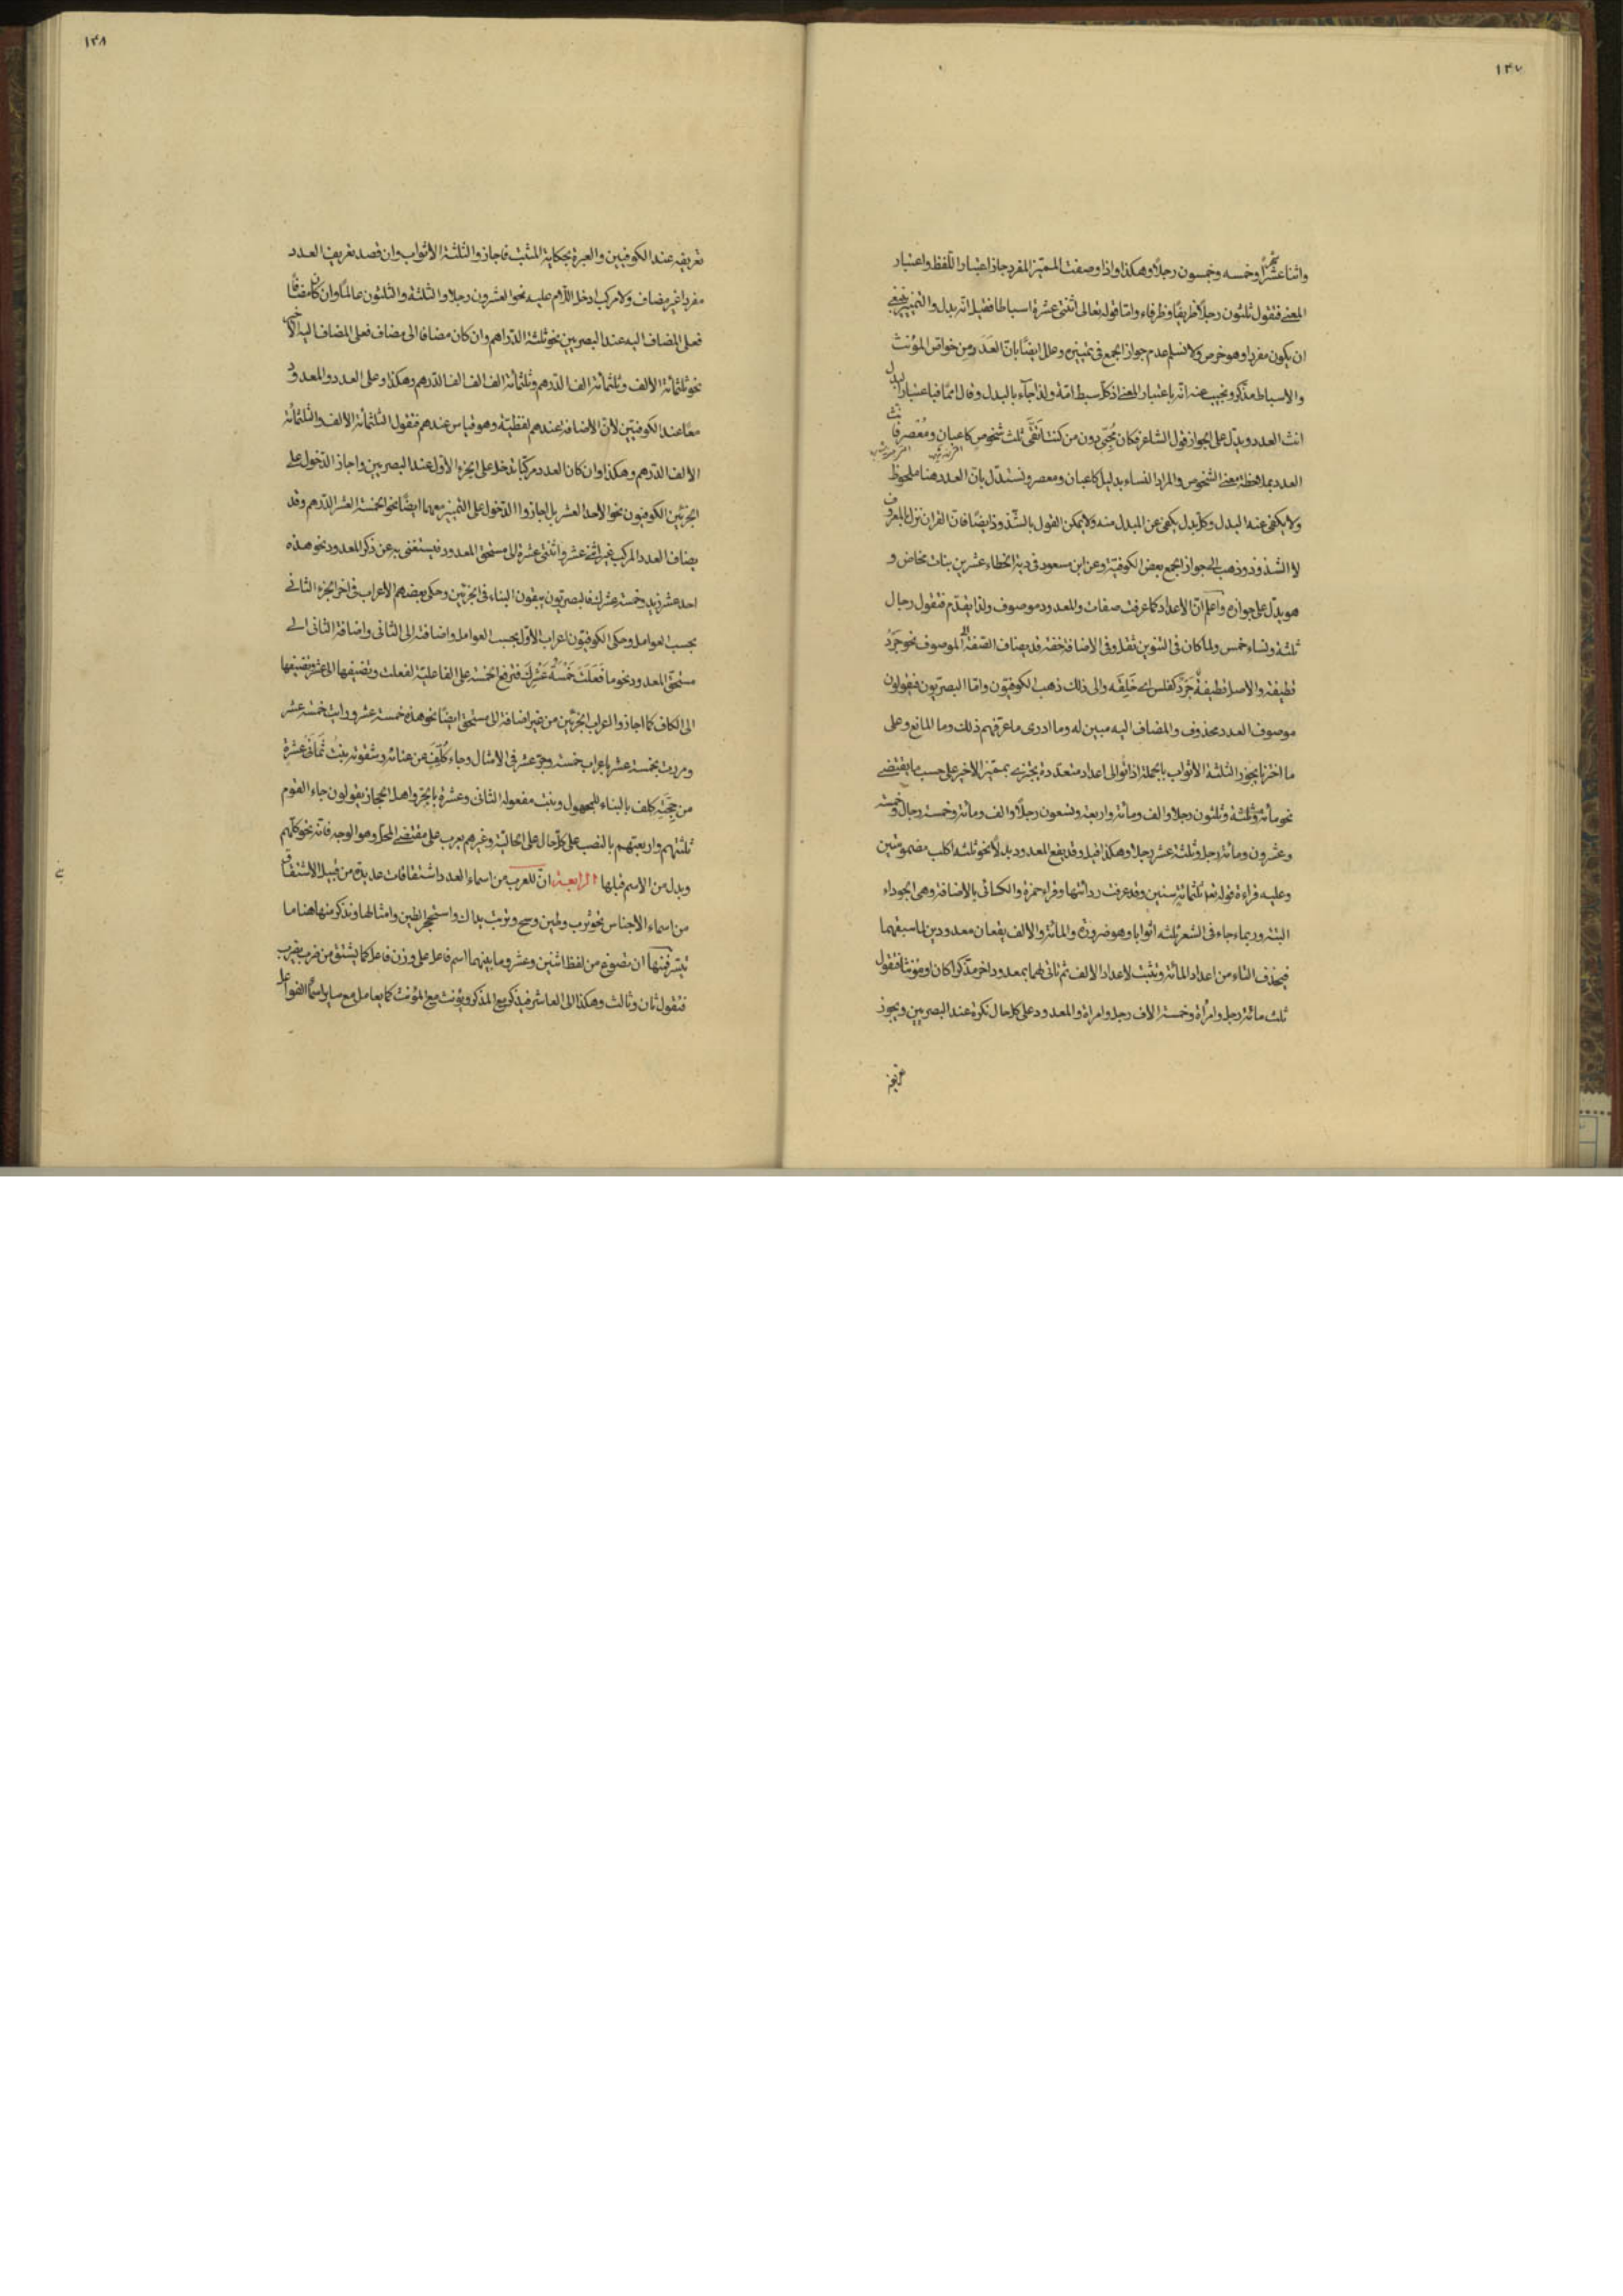 ١٤٧
واثنا عشر شهرًا وخمسه وخمسون رجلًا وهكذا واذا وصفت المميّز المفرد جاز اعتبار اللّفظ واعتبار
المعنى فتقول ثلثون رجلًا ظريفًا وظرفاء وامّا قوله تعالى اثنتى عشرة اسباطا فقيل انّه بدل والتميز ينبغى
ان يكون مفردا وهو خرص ولا نسلم عدم جواز الجمع فى تميزه وعلل ايضًا بانّ العَدَد من خواص المؤنث
والاسباط مذكر ونجيب عنه انّه باعتبار المعنى اذ كلّ سبط امّة ولذا جآء بالبدل وقال امما فباعتبار البدل
انث العدد ويدلّ على الجواز قول الشاعر فكان مُجِنّى دون من كنت اتقى ثلث شخوص كاعبان ومُعصر فانث
العدد بملاحظة معنى الشخوص والمراد النساء بدليل كاعبان ومعصر ونستدلّ بانّ العدد هنا ملحوظ
ولا يكفى عنه البدل وكلّ بدل يكفى عن المبدل منه ولا يمكن القول بالشّذوذ ايضًا فانّ القران نزل بالمعروف
لا الشذوذ وذهب الى جواز الجمع بعض الكوفية وعن ابن مسعود فى دية الخطاء عشرين بنات مخاض و
هو يدلّ على جوازه واعلم انّ الاعداد كما عرفت صفات والمعدود موصوف ولذا يقدّم فتقول رجال
ثلثة ونساء خمس ولما كان فى التنوين ثقل وفى الاضافة خفة قد يضاف الصّفة الى الموصوف نحو جَرْدُ
قطيفة والاصل قطيفةٌ جَرْدٌ كفلس اى خَلِقَه والى ذلك ذهب الكوفيّون وامّا البصريّون فيقولون
موصوف العدد محذوف والمضاف اليه مبين له وما ادرى ما عرّفهم ذلك وما المانع وعلى
ما اخترنا يجوز الثلثة الاثواب بالجملة اذا توالى اعداد متعدّدة يجتزى بمميّز الاخير على حسب ما يقتضى
نحو مأة وثلثة وثلثون رجلا والف ومأة واربعة وتسعون رجلًا والف ومأة وخمسة رجال وخمسة
وعشرون ومأة رجل وثلثة عشر رجلا وهكذا قيل وقد يقع المعدود بدلًا نحو ثلثة اكلب مضمومتين
وعليه قراءة قوله تعا ثلثمائةٍ سنين وقد عرفت ردائتها وقراءة حمزة والكسائى بالاضافة وهى الجوداء
البتة وربما جاء فى الشعر ثلثه اثوابا وهو ضرورة والمأة والالف يقعان معدودين لما سبقهما
فيحذف التاء من اعداد المأة وتثبت لاعداد الالف ثم تاتى لهما بمعدود اخر مذكرا كان او مؤنثا فتقول
ثلث مائة رجل وامرأة وخمسة الاف رجل وامراة والمعدود على كل حال نكرة عند البصريين ويجوز
تعريفه
١٤٨
تعريفه عند الكوفيين والعبرة بحكاية المثبت فاجازوا الثلثة الاثواب وان قصد تعريف العدد
مفردا غير مضاف ولا مركب ادخل اللّام عليه نحو العشرون رجلا والثلثة والثلثون عالمًا وان كان مضافًا
فعلى المضاف اليه عند البصريين نحو ثلثة الدّراهم وان كان مضافا الى مضاف فعلى المضاف اليه الاخير
نحو ثلثمأة الالف وثلثمأة الف الدّرهم وثلثمأة الف الف الف الدّرهم وهكذا وعلى العدد والمعدود
معًا عند الكوفيّين لانّ الاضافة عندهم لفظية وهو قياس عندهم فتقول الثلثمأة الالف والثلثمأة
الالف الدّرهم وهكذا وان كان العدد مركّبا تدخل على الجزء الاوّل عند البصريين واجاز الدّخول على
الجزئين الكوفيون نحو الاحد العشر بل اجازوا الدّخول على التميز معهما ايضًا نحو الخمسة العشر الدّرهم وقد
يضاف العدد المركب غير اثنى عشر واثنتى عشرة الى مستحق المعدود فيستغنى به عن ذكر المعدود نحو هذه
احد عشر زيد وخمسة عشرك فالبصريّون يبقون البناء فى الجزئين وحكى بعضهم الاعراب فى اخر الجزء الثانى
بحسب العوامل وحكى الكوفيّون اعراب الاوّل بحسب العوامل واضافته الى الثانى واضافة الثانى الى
مستحق المعدود نحو ما فَعَلَتْ خَمْسَةُ عَشَرِكَ فترفع الخمسة على الفاعليّة لفعلت وتضيفها الى عشر وتضيفها
الى الكاف كما اجازوا اعراب الجزئين من غير اضافة الى مستحق ايضًا نحو هذه خمسة عشر ورايت خمسة عشر
ومررت بخمسة عشر باعراب خمسة وجرّ عشر فى الامثال وجاء كُلِّفَ من عنائه وشقوته بنتَ ثَمانى عشرة
من حِجَّتِه كلف بالبناء للمجهول وبنت مفعوله الثانى وعشرة بالجرّ واهل الحجاز يقولون جاء القوم
ثلثتهم واربعتهم بالنصب على كلّ حال على الحاليّة وغيرهم يعرب على مقتضى المحلّ وهو الوجه فانّه نحو كلّهم
وبدل من الاسم قبلها الرابعة انّ للعرب من اسماء العدد اشتقاقات عديدة من قبيل الاشتقاق
من اسماء الاجناس نحو ترب وطين وسح وتربت يداك واستحجر الطين وامثالها ونذكر منها هنا ما
تيسّر فمنها ان تصوغ من لفظ اثنين وعشر وما بينهما اسم فاعل على وزن فاعل كما يشتق من ضرب يضرب
فتقول ثان وثالث وهكذا الى العاشر فيذكر مع المذكر ويؤنث مع المؤنث كما يعامل مع ساير اسماء الفواعل